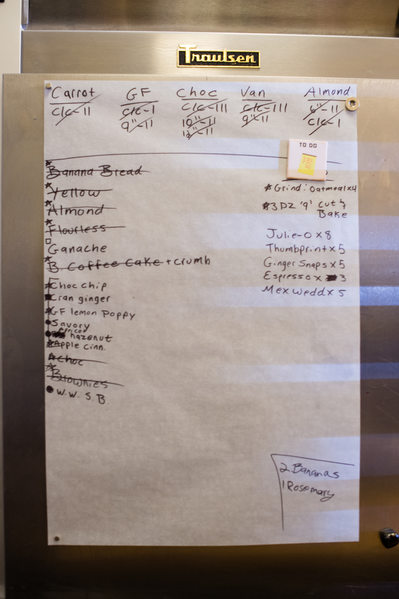 Traulsen
Carrot GF Choc Van Almond
c/c-11 c/c-1 c/c-111 c/c-111 6"-11
9"-11 10"-11 9"-11 c/c-1
12"-11
TO DO
Banana Bread
Yellow
Almond
Flourless
Ganache
B Coffee Cake + crumb
Choc chip
Cran ginger
GF lemon poppy
Savory
hazenut
Apple cinn.
Choc
Brownies
W.W. S.B.
Grind: Oatmeal x4
3DZ '9' Cut 4
Bake
Julie-O x 8
Thumbprint x 5
Ginger Snaps x 5
Espresso x 3
Mex Wedd x 5
2 Bananas
1 Rosemary